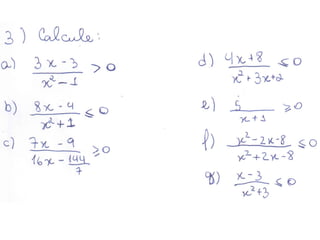 3) Calcule:
a) (3x-3)/(x²-1) > 0
b) (8x-4)/(x²+1) ≤ 0
c) (7x-9)/(16x-144/7) ≥ 0
d) (4x+8)/(x²+3x+2) ≤ 0
e) 5/(x+1) ≥ 0
f) (x²-2x-8)/(x²+2x-8) ≤ 0
g) (x-3)/(x²+3) ≤ 0